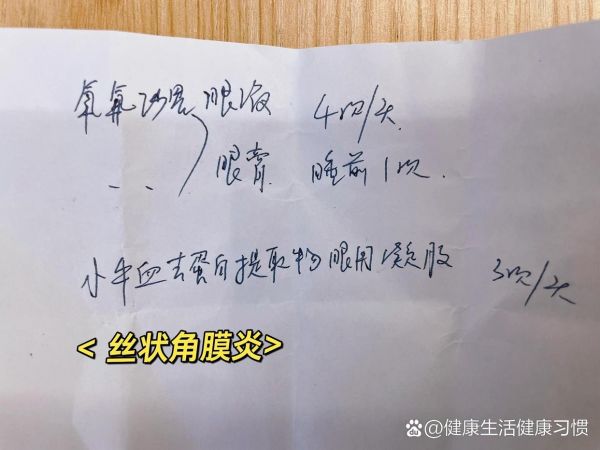 氧氟沙星眼液 4次/天
、、 眼膏 睡前1次.
小牛血去蛋白提取物眼用凝胶 3次/天
<丝状角膜炎>
@健康生活健康习惯